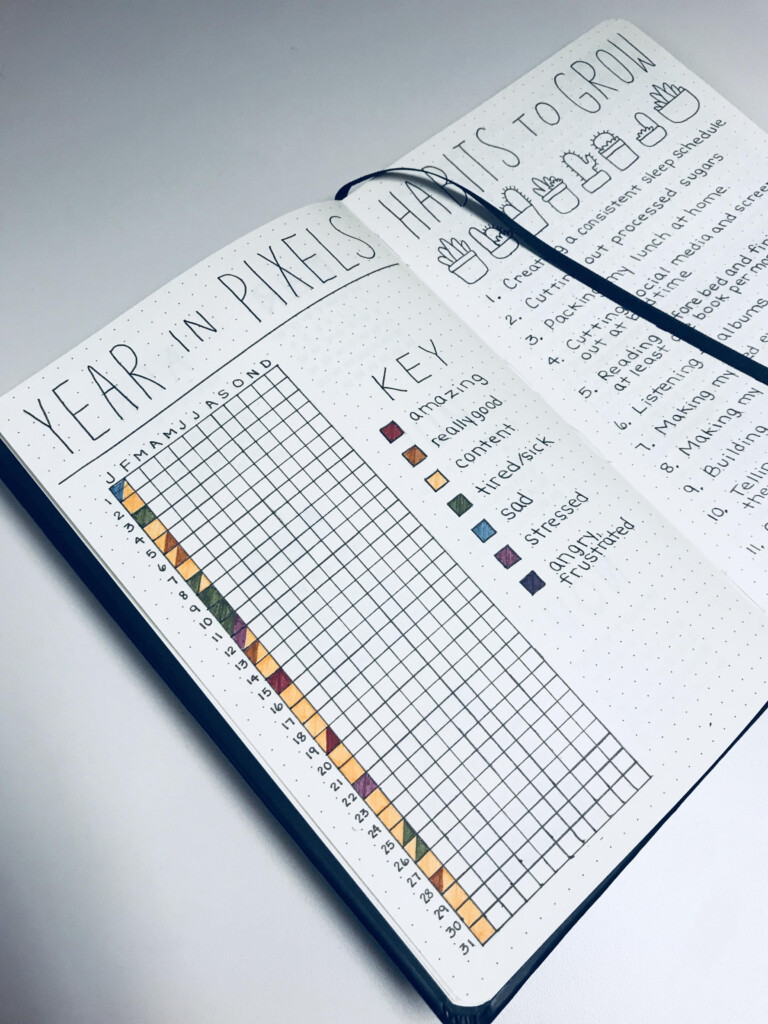 YEAR IN PIXELS
J F M A M J J A S O N D
2
3
4
5
6
7
8
9
10
11
12
13
14
15
16
17
18
19
20
21
22
23
24
25
26
27
28
29
30
31
KEY
amazing
really good
content
tired/sick
sad
stressed
angry,
frustrated
HABITS TO GROW
1. Creating a consistent sleep schedule
2. Cutting out processed sugars
3. Packing my lunch at home
4. Cutting social media and
out at bedtime
5. Reading before bed and
at least one book per
6. Listening albums
7. Making my
8. Making my
9. Building
10.
11.